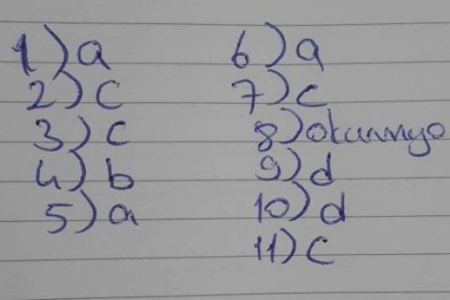 1) a
2) c
3) c
4) b
5) a
6) a
7) c
8) okunmuyo
9) d
10) d
11) c